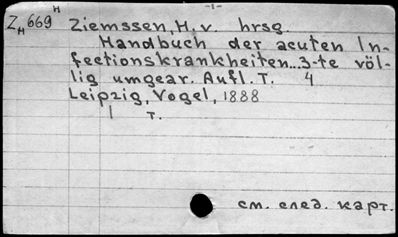 -1-
Z H 669 H Ziemssen, H. v. hrsg.
Handbuch der acuten In-
fectionskrankheiten... 3-te völ-
lig umgear. Aufl. T. 4
Leipzig, Vogel, 1888
1 т.
см. след. карт.